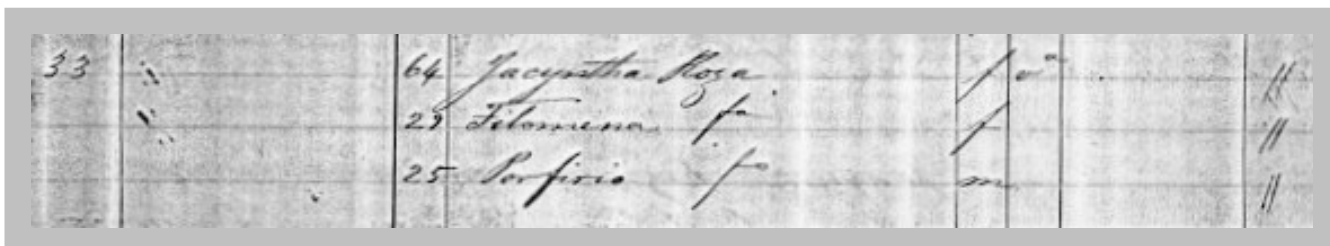 33 " 64 Jacyntha Roza f vª "
" 29 Filomena fª f "
25 Porfirio fº m "